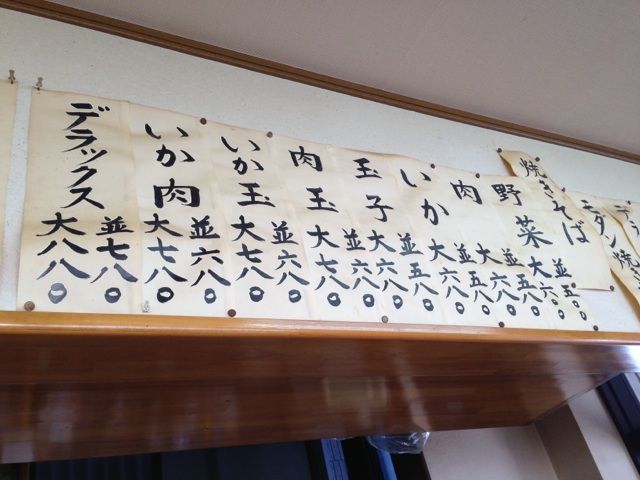 モダン焼
焼きそば
野菜
並五〇〇
大六〇〇
肉
並五八〇
大六八〇
いか
並五八〇
大六八〇
玉子
並五八〇
大六八〇
肉玉
並六八〇
大七八〇
いか玉
並六八〇
大七八〇
いか肉
並六八〇
大七八〇
デラックス
並七八〇
大八八〇